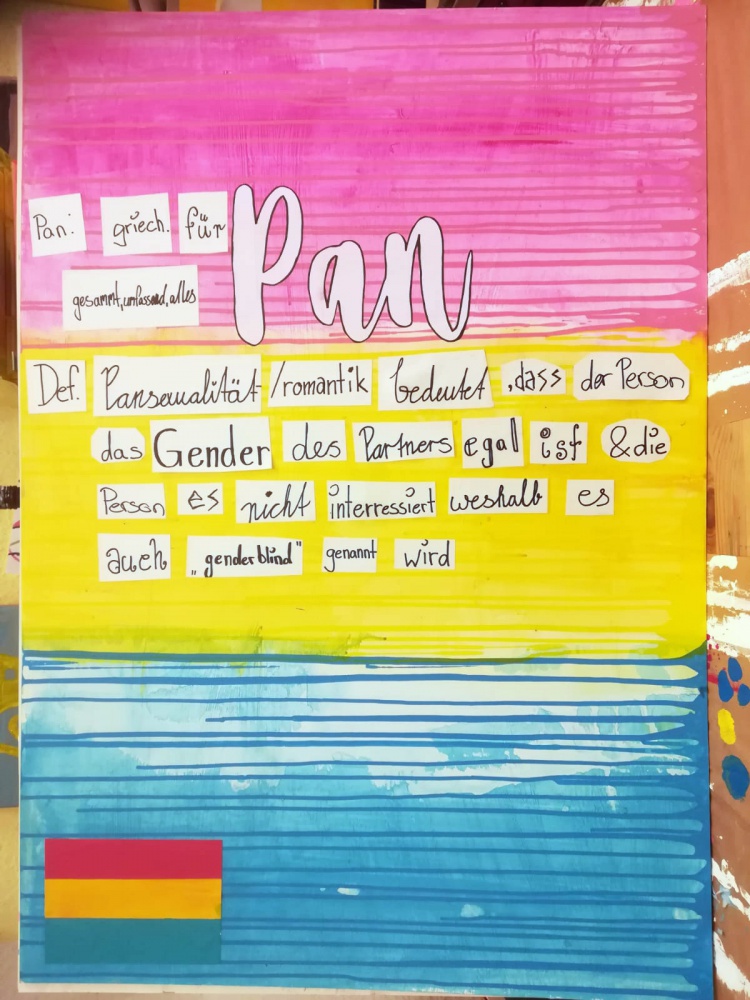 Pan: griech. für
Pan
gesammt, umfassend, alles
Def. Pansexualität-/romantik bedeutet, dass der Person
das Gender des Partners egal ist & die
Person es nicht interressiert weshalb es
auch „genderblind" genannt wird